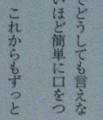 でどうしても言えな
いほど簡単に口をつ
これからもずっと